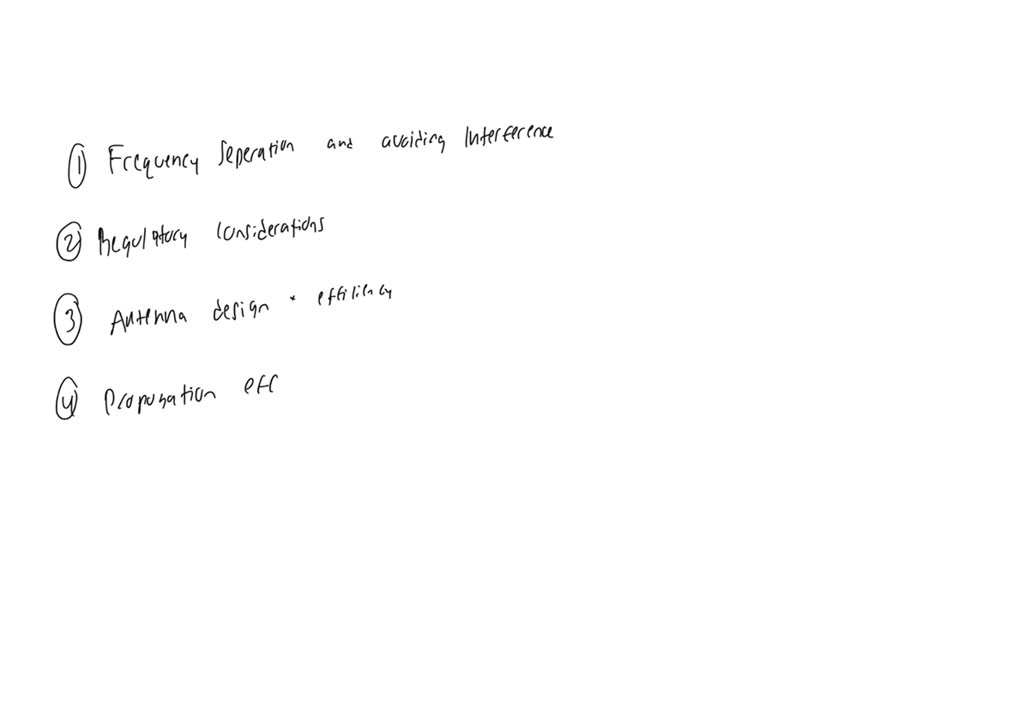 ① Frequency Seperation and avoiding Interference
② Regulatory considerations
③ Antenna design + efficiency
④ Propogation eff